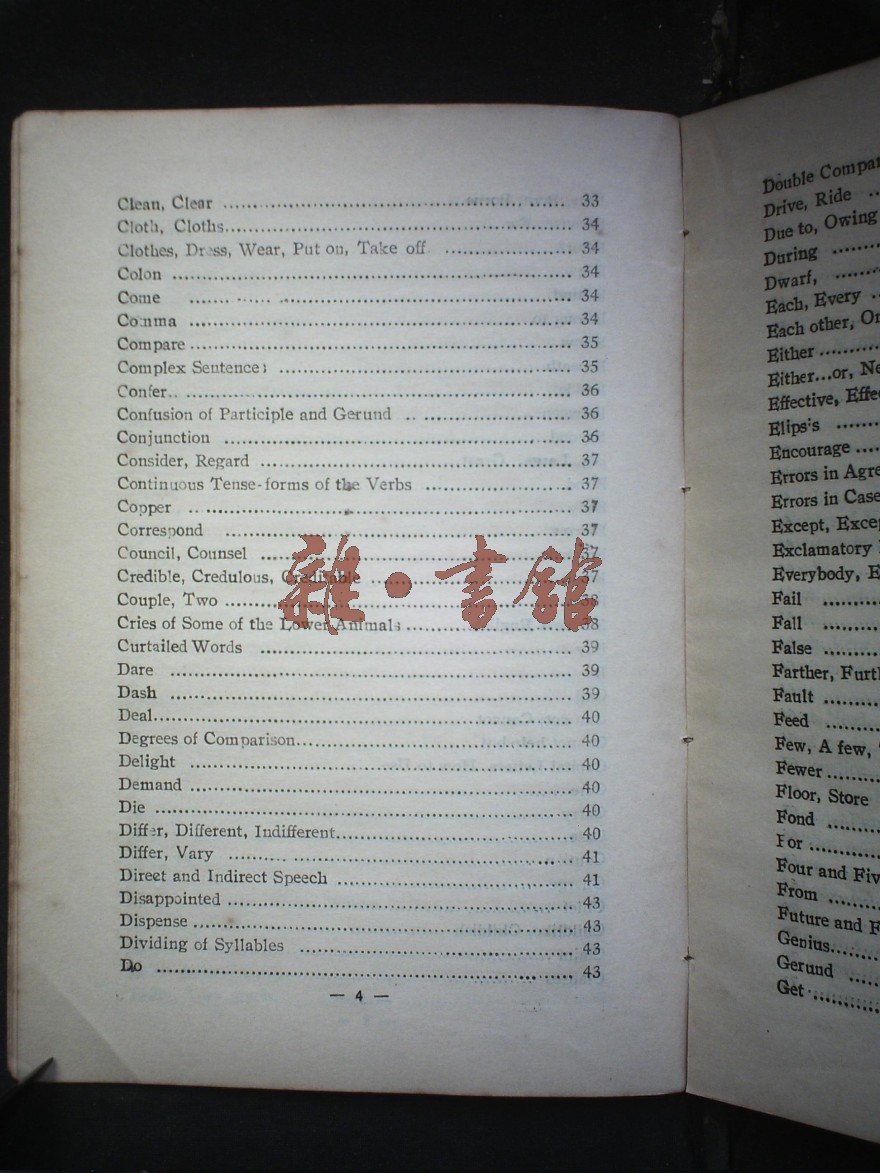 Clean, Clear ........ 33
Cloth, Cloths........ 34
Clothes, Dress, Wear, Put on, Take off ........ 34
Colon ........ 34
Come ........ 34
Comma ........ 34
Compare ........ 35
Complex Sentences ........ 35
Confer ........ 36
Confusion of Participle and Gerund ........ 36
Conjunction ........ 36
Consider, Regard ........ 37
Continuous Tense-forms of the Verbs ........ 37
Copper ........ 37
Correspond ........ 37
Council, Counsel ........ 37
Credible, Credulous, Creditable ........ 37
Couple, Two ........ 38
Cries of Some of the Lower Animals ........ 38
Curtailed Words ........ 39
Dare ........ 39
Dash ........ 39
Deal ........ 40
Degrees of Comparison ........ 40
Delight ........ 40
Demand ........ 40
Die ........ 40
Differ, Different, Indifferent ........ 40
Differ, Vary ........ 41
Direct and Indirect Speech ........ 41
Disappointed ........ 43
Dispense ........ 43
Dividing of Syllables ........ 43
Do ........ 43
— 4 —
雜·書館
Double Compar
Drive, Ride
Due to, Owing
During ........
Dwarf, ........
Each, Every
Each other, On
Either ........
Either...or, Ne
Effective, Effe
Elips's ........
Encourage ....
Errors in Agre
Errors in Case
Except, Excep
Exclamatory
Everybody, E
Fail ........
Fall ........
False ........
Farther, Furth
Fault ........
Feed ........
Few, A few,
Fewer ........
Floor, Store
Fond ........
For ........
Four and Fiv
From ........
Future and F
Genius ........
Gerund ....
Get ........